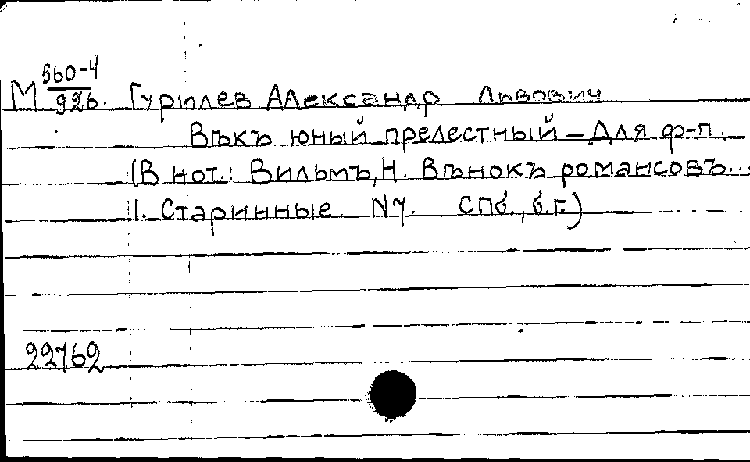 М 560-4/926. Гурилев Александр Львович
Вѣкъ юный прелестный – Для ф-п.
(В нот.: Вильмъ, Н. Вѣнокъ романсовъ...
II. Старинные. N 7. СПб., б.г.)
22762